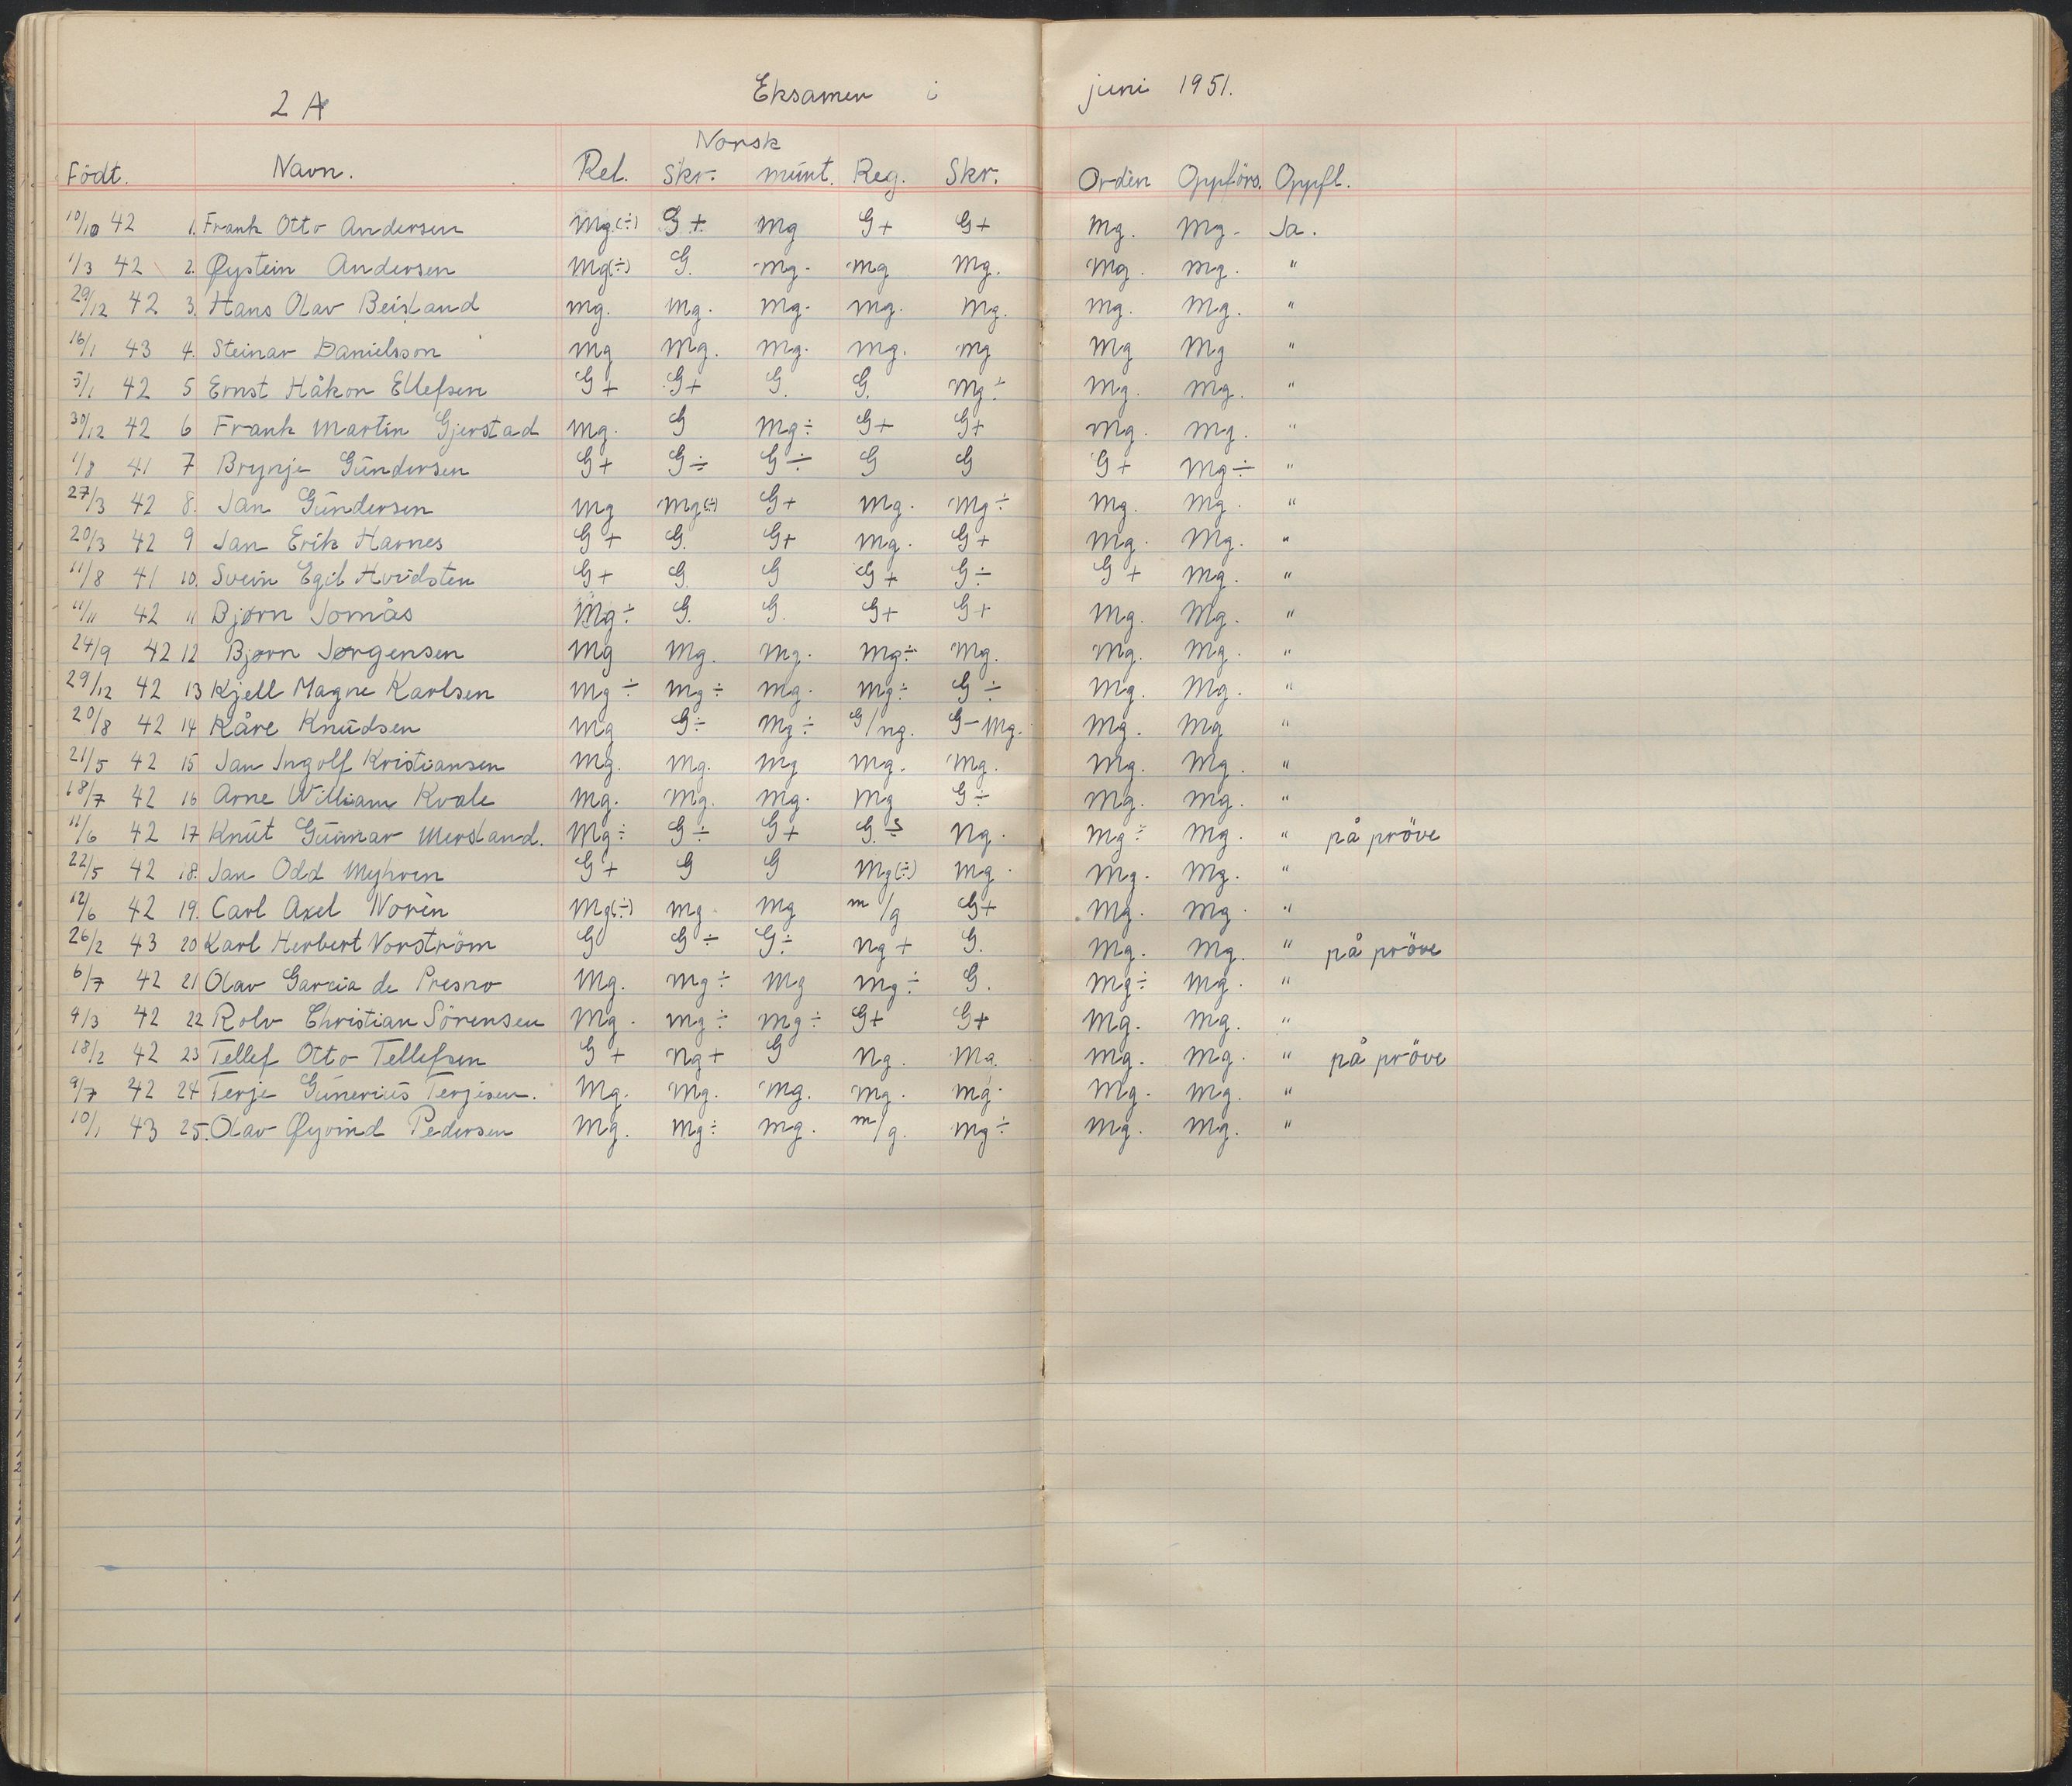 2 A Eksamen i juni 1951.
Norsk
Födt. Navn. Rel. Skr. münt. Reg. Skr. Orden Oppförs. Oppfl.
10/10 42 1. Frank Otto Andersen Mg.(÷) G+ Mg G+ G+ Mg. Mg. Ja.
1/3 42 2. Øystein Andersen Mg(÷) G. mg. mg Mg. Mg. mg. "
29/12 42 3. Hans Olav Beisland mg. mg. mg. mg. mg. mg. Mg. "
16/1 43 4. Steinar Danielsson mg mg. mg. mg. mg Mg Mg "
5/1 42 5 Ernst Håkon Ellefsen G+ G+ G. G. mg÷ Mg. mg. "
30/12 42 6 Frank Martin Gjerstad mg. G mg÷ G+ G+ mg. mg. "
1/8 41 7 Brynje Gündersen G+ G÷ G÷ G G G+ Mg÷ "
27/3 42 8. Jan Gündersen mg mg(÷) G+ mg. mg÷ mg. mg. "
20/3 42 9 Jan Erik Harnes G+ G. G+ mg. G+ mg. Mg. "
11/8 41 10. Svein Egil Hvidsten G+ G. G G+ G÷ G+ mg. "
11/11 42 11 Bjørn Jomås Mg÷ G. G. G+ G+ Mg. Mg. "
24/9 42 12 Bjørn Jørgensen Mg Mg. mg. mg÷ mg. mg. Mg. "
29/12 42 13 Kjell Magne Karlsen mg÷ mg÷ mg. mg÷ G÷ Mg. Mg. "
20/8 42 14 Kåre Knüdsen mg G÷ mg÷ G/ng. G-Mg. Mg. Mg "
21/5 42 15 Jan Ingolf Kristiansen Mg. mg. mg mg. mg. Mg. Mg. "
18/7 42 16 Arne William Kvale mg. mg. mg. mg G÷ Mg. mg. "
11/6 42 17 Knüt Günnar Mersland. Mg÷ G÷ G+ G.÷ ng. mg÷ mg. " på pröve
22/5 42 18. Jan Odd Myhren G+ G G Mg(÷) mg. mg. mg. "
12/6 42 19. Carl Axel Norèn Mg(÷) mg mg m/g G+ mg. mg. "
26/2 43 20 Karl Herbert Norström G G÷ G÷ ng+ G. mg. mg. " på pröve
6/7 42 21 Olav Garcia de Presno Mg. mg÷ mg mg÷ G. mg÷ mg. "
9/3 42 22 Rolv Christian Sörensen Mg. mg÷ mg÷ G+ G+ mg. mg. "
18/2 42 23 Tellef Otto Tellefsen G+ ng+ G ng. mg. mg. mg. " på pröve
9/7 42 24 Terje Günerius Terjesen. Mg. mg. mg. mg. mg. mg. mg. "
10/1 43 25. Olav Øyvind Pedersen Mg. mg÷ mg. m/g. mg÷ mg. mg. "